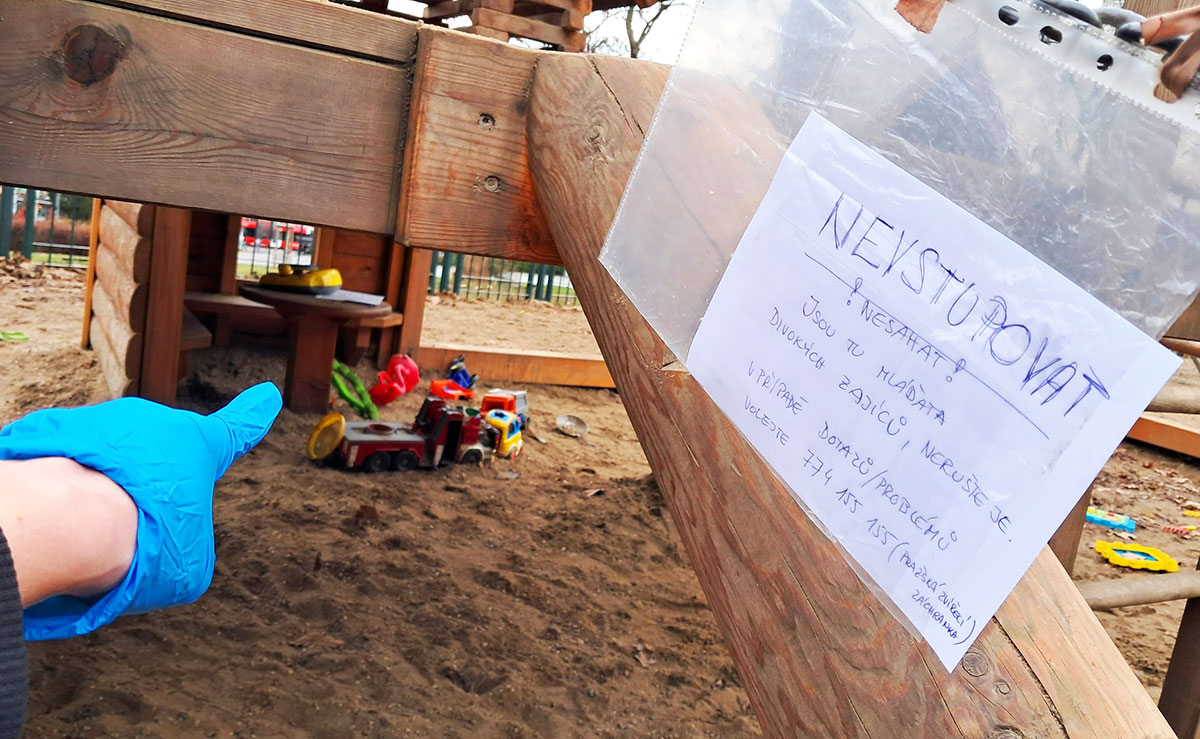 NEVSTUPOVAT
! NESAHAT !
JSOU TU MLÁĎATA
DIVOKÝCH ZAJÍCŮ, NERUŠTE JE.
V PŘÍPADĚ DOTAZŮ/PROBLÉMŮ
VOLEJTE 774 155 155 (PRAŽSKÁ ZVÍŘECÍ
ZÁCHRANKA)